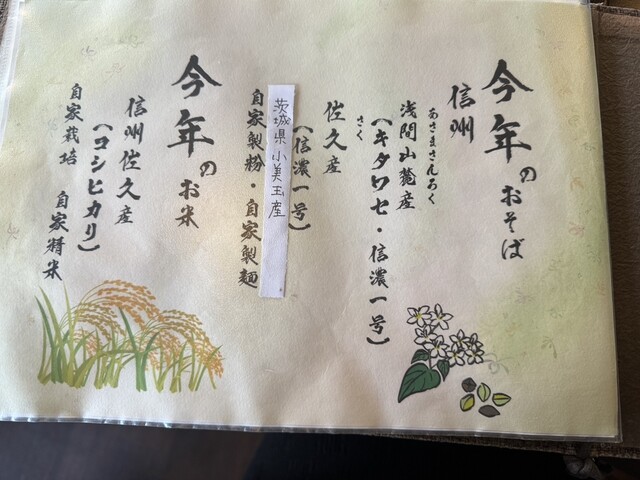 今年のおそば
信州
あさまさんろく
浅間山麓産
(キタワセ・信濃一号)
さく
佐久産
(信濃一号)
茨城県小美玉産
自家製粉・自家製麺
今年のお米
信州佐久産
(コシヒカリ)
自家栽培 自家精米